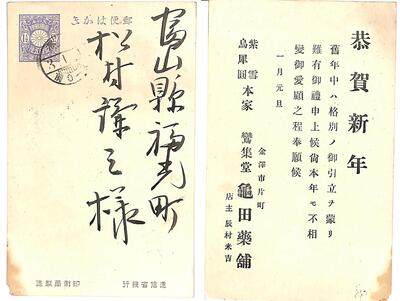 郵便はがき
富山縣福光町
松村謙三様
逓信省發行
印刷局製造
恭賀新年
舊年中ハ格別ノ御引立ヲ蒙リ
難有御禮申上候尚本年モ不相
變御愛顧之程奉願候
一月元旦
金澤市片町
紫雪
烏犀圓
本家
鸞集堂
龜田藥舖
店主 辰村米吉